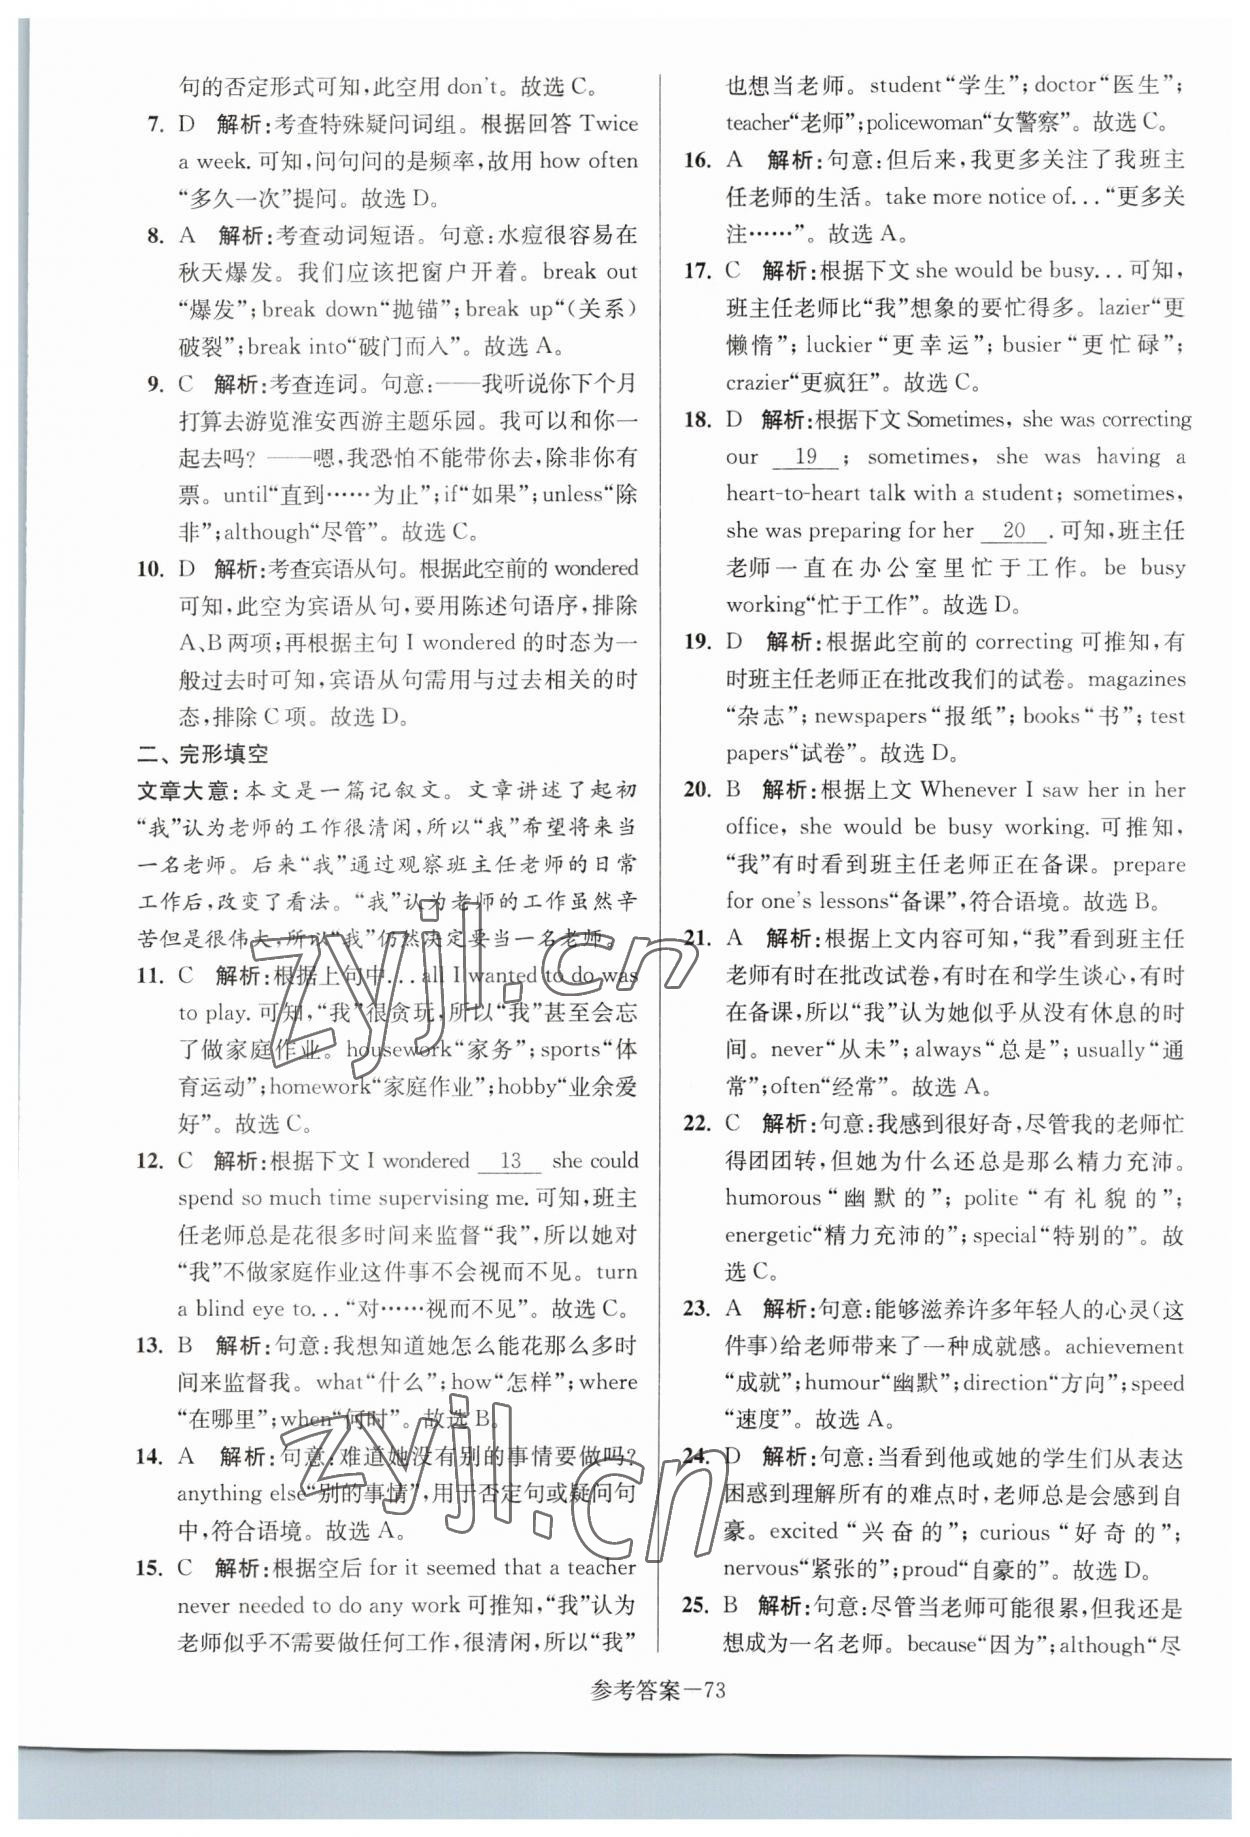 句的否定形式可知,此空用 don't。故选 C。
7. D 解析:考查特殊疑问词组。根据回答 Twice
a week. 可知,问句问的是频率,故用 how often
“多久一次”提问。故选 D。
8. A 解析:考查动词短语。句意:水痘很容易在
秋天爆发。我们应该把窗户开着。break out
“爆发”;break down“抛锚”;break up“(关系)
破裂”;break into“破门而入”。故选 A。
9. C 解析:考查连词。句意:——我听说你下个月
打算去游览淮安西游主题乐园。我可以和你一
起去吗? ——嗯,我恐怕不能带你去,除非你有
票。until“直到……为止”;if“如果”;unless“除
非”;although“尽管”。故选 C。
10. D 解析:考查宾语从句。根据此空前的 wondered
可知,此空为宾语从句,要用陈述句语序,排除
A、B 两项;再根据主句 I wondered 的时态为一
般过去时可知,宾语从句需用与过去相关的时
态,排除 C 项。故选 D。
二、完形填空
文章大意:本文是一篇记叙文。文章讲述了起初
“我”认为老师的工作很清闲,所以“我”希望将来当
一名老师。后来“我”通过观察班主任老师的日常
工作后,改变了看法。“我”认为老师的工作虽然辛
苦但是很伟大,所以“我”仍然决定要当一名老师。
11. C 解析:根据上句中...all I wanted to do was
to play. 可知,“我”很贪玩,所以“我”甚至会忘
了做家庭作业。housework“家务”;sports“体
育运动”;homework“家庭作业”;hobby“业余爱
好”。故选 C。
12. C 解析:根据下文 I wondered 13 she could
spend so much time supervising me. 可知,班主
任老师总是花很多时间来监督“我”,所以她对
“我”不做家庭作业这件事不会视而不见。turn
a blind eye to...“对……视而不见”。故选 C。
13. B 解析:句意:我想知道她怎么能花那么多时
间来监督我。what“什么”;how“怎样”;where
“在哪里”;when“何时”。故选 B。
14. A 解析:句意:难道她没有别的事情要做吗?
anything else“别的事情”,用于否定句或疑问句
中,符合语境。故选 A。
15. C 解析:根据空后 for it seemed that a teacher
never needed to do any work 可推知,“我”认为
老师似乎不需要做任何工作,很清闲,所以“我”
也想当老师。student“学生”;doctor“医生”;
teacher“老师”;policewoman“女警察”。故选 C。
16. A 解析:句意:但后来,我更多关注了我班主
任老师的生活。take more notice of...“更多关
注……”。故选 A。
17. C 解析:根据下文 she would be busy... 可知,
班主任老师比“我”想象的要忙得多。lazier“更
懒惰”;luckier“更幸运”;busier“更忙碌”;
crazier“更疯狂”。故选 C。
18. D 解析:根据下文 Sometimes, she was correcting
our 19 ; sometimes, she was having a
heart-to-heart talk with a student; sometimes,
she was preparing for her 20 . 可知,班主任
老师一直在办公室里忙于工作。be busy
working“忙于工作”。故选 D。
19. D 解析:根据此空前的 correcting 可推知,有
时班主任老师正在批改我们的试卷。magazines
“杂志”;newspapers“报纸”;books“书”;test
papers“试卷”。故选 D。
20. B 解析:根据上文 Whenever I saw her in her
office, she would be busy working. 可推知,
“我”有时看到班主任老师正在备课。prepare
for one's lessons“备课”,符合语境。故选 B。
21. A 解析:根据上文内容可知,“我”看到班主任
老师有时在批改试卷,有时在和学生谈心,有时
在备课,所以“我”认为她似乎从没有休息的时
间。never“从未”;always“总是”;usually“通
常”;often“经常”。故选 A。
22. C 解析:句意:我感到很好奇,尽管我的老师忙
得团团转,但她为什么还总是那么精力充沛。
humorous“幽默的”;polite“有礼貌的”;
energetic“精力充沛的”;special“特别的”。故
选 C。
23. A 解析:句意:能够滋养许多年轻人的心灵(这
件事)给老师带来了一种成就感。achievement
“成就”;humour“幽默”;direction“方向”;speed
“速度”。故选 A。
24. D 解析:句意:当看到他或她的学生们从表达
困惑到理解所有的难点时,老师总是会感到自
豪。excited“兴奋的”;curious“好奇的”;
nervous“紧张的”;proud“自豪的”。故选 D。
25. B 解析:句意:尽管当老师可能很累,但我还是
想成为一名老师。because“因为”;although“尽
参考答案—73
zyjl.cn
zyjl.cn